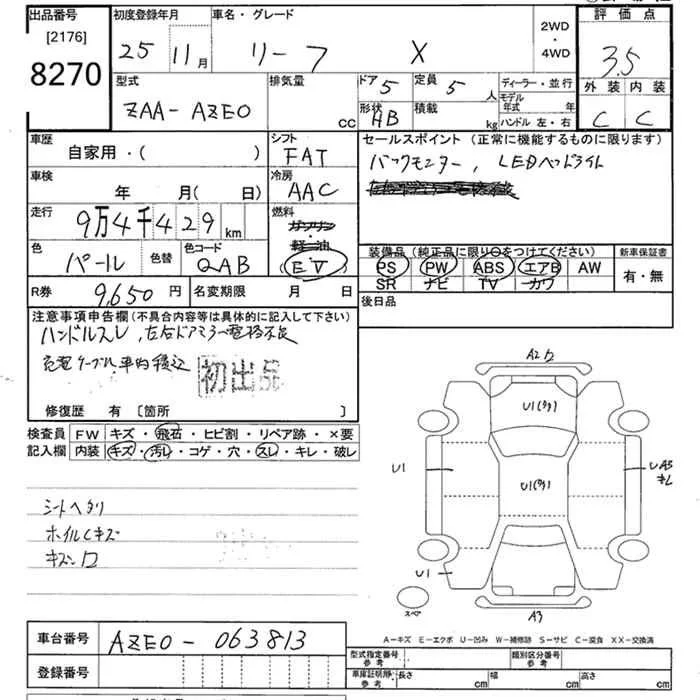 出品番号 初度登録年月 車名・グレード 2WD・4WD 評価点
[2176]
8270 25 11月 リーフ X 3.5
型式 排気量 ドア 5 定員 5人 ディーラー・並行 外装 内装
ZAA-AZE0 cc 形状 HB 積載 kg モデル年式 年 C C
ハンドル 左・右
車歴 シフト セールスポイント (正常に機能するものに限ります)
自家用・( ) FAT バックモニター, LEDヘッドライト
車検 冷房
年 月( 日) AAC
走行 燃料
9万4千429km ガソリン・軽油
(EV)
色 色替 色コード 装備品 (純正品に限り○をつけてください) 新車保証書
パール QAB PS PW ABS エアB AW 有・無
SR ナビ TV カワ
R券 9,650円 名変期限 月 日 後日品
注意事項申告欄(不具合内容等は具体的に記入して下さい)
ハンドルスレ, 左右ドアミラー電格不良
充電ケーブル車内積込
初出品
修復歴 有 [箇所 ]
検査員 FW キズ・飛石・ヒビ割・リペア跡・×要
記入欄 内装 キズ・汚レ・コゲ・穴・スレ・キレ・破レ
シートヘタリ
ホイルCキズ
A2
U1(タタ)
U1
U1(タタ)
U1
スペア
A3
A-キズ E-エクボ U-凹み W-補修跡 S-サビ C-腐食 XX-交換済
車台番号 AZE0-063813
型式指定番号 参考 類別区分番号 参考
登録番号 車庫証明用 参考 長さ cm 幅 cm 高さ cm